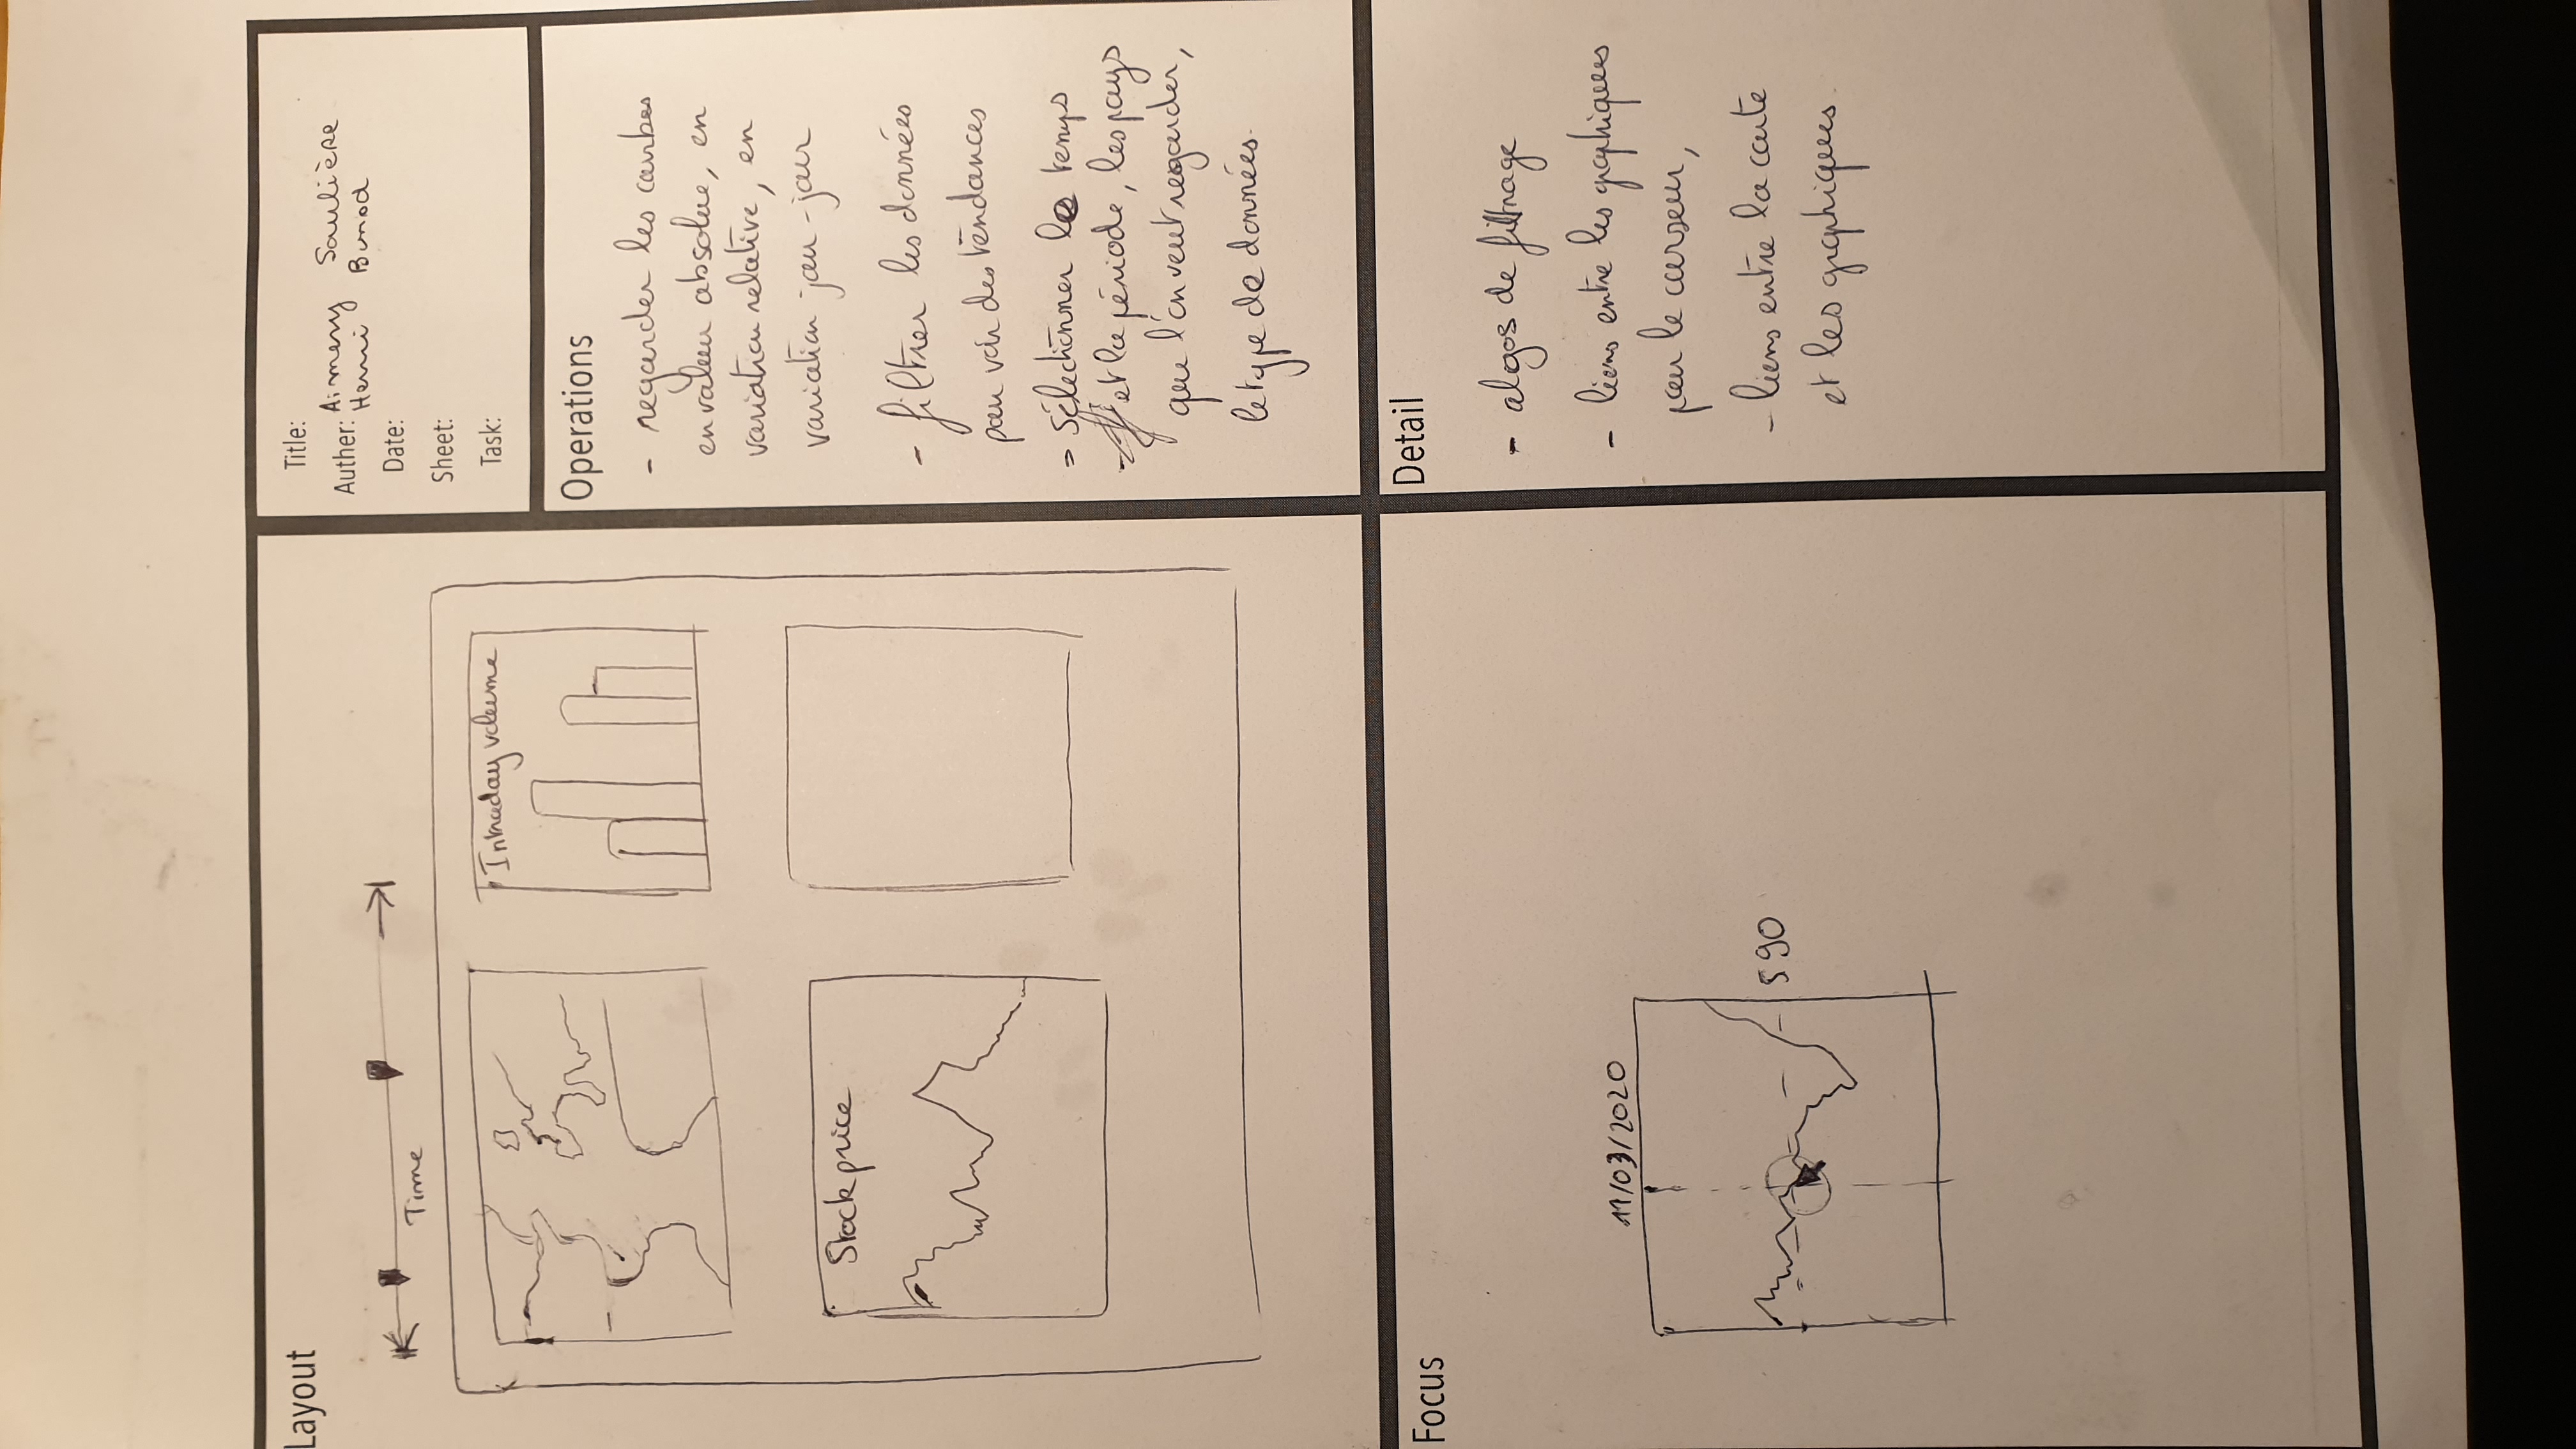 Layout
Time
Intraday volume
Stock price
Title:
Auther: Aimery Saulière
Henri Bunod
Date:
Sheet:
Task:
Operations
- regarder les courbes
en valeur absolue, en
variation relative, en
variation jour-jour
- filtrer les données
pour voir des tendances
- Sélectionner le temps
et la période, les pays
que l'on veut regarder,
le type de données.
Focus
11/03/2020
590
Detail
- algos de filtrage
- liens entre les graphiques
pour le curseur,
- liens entre la carte
et les graphiques.